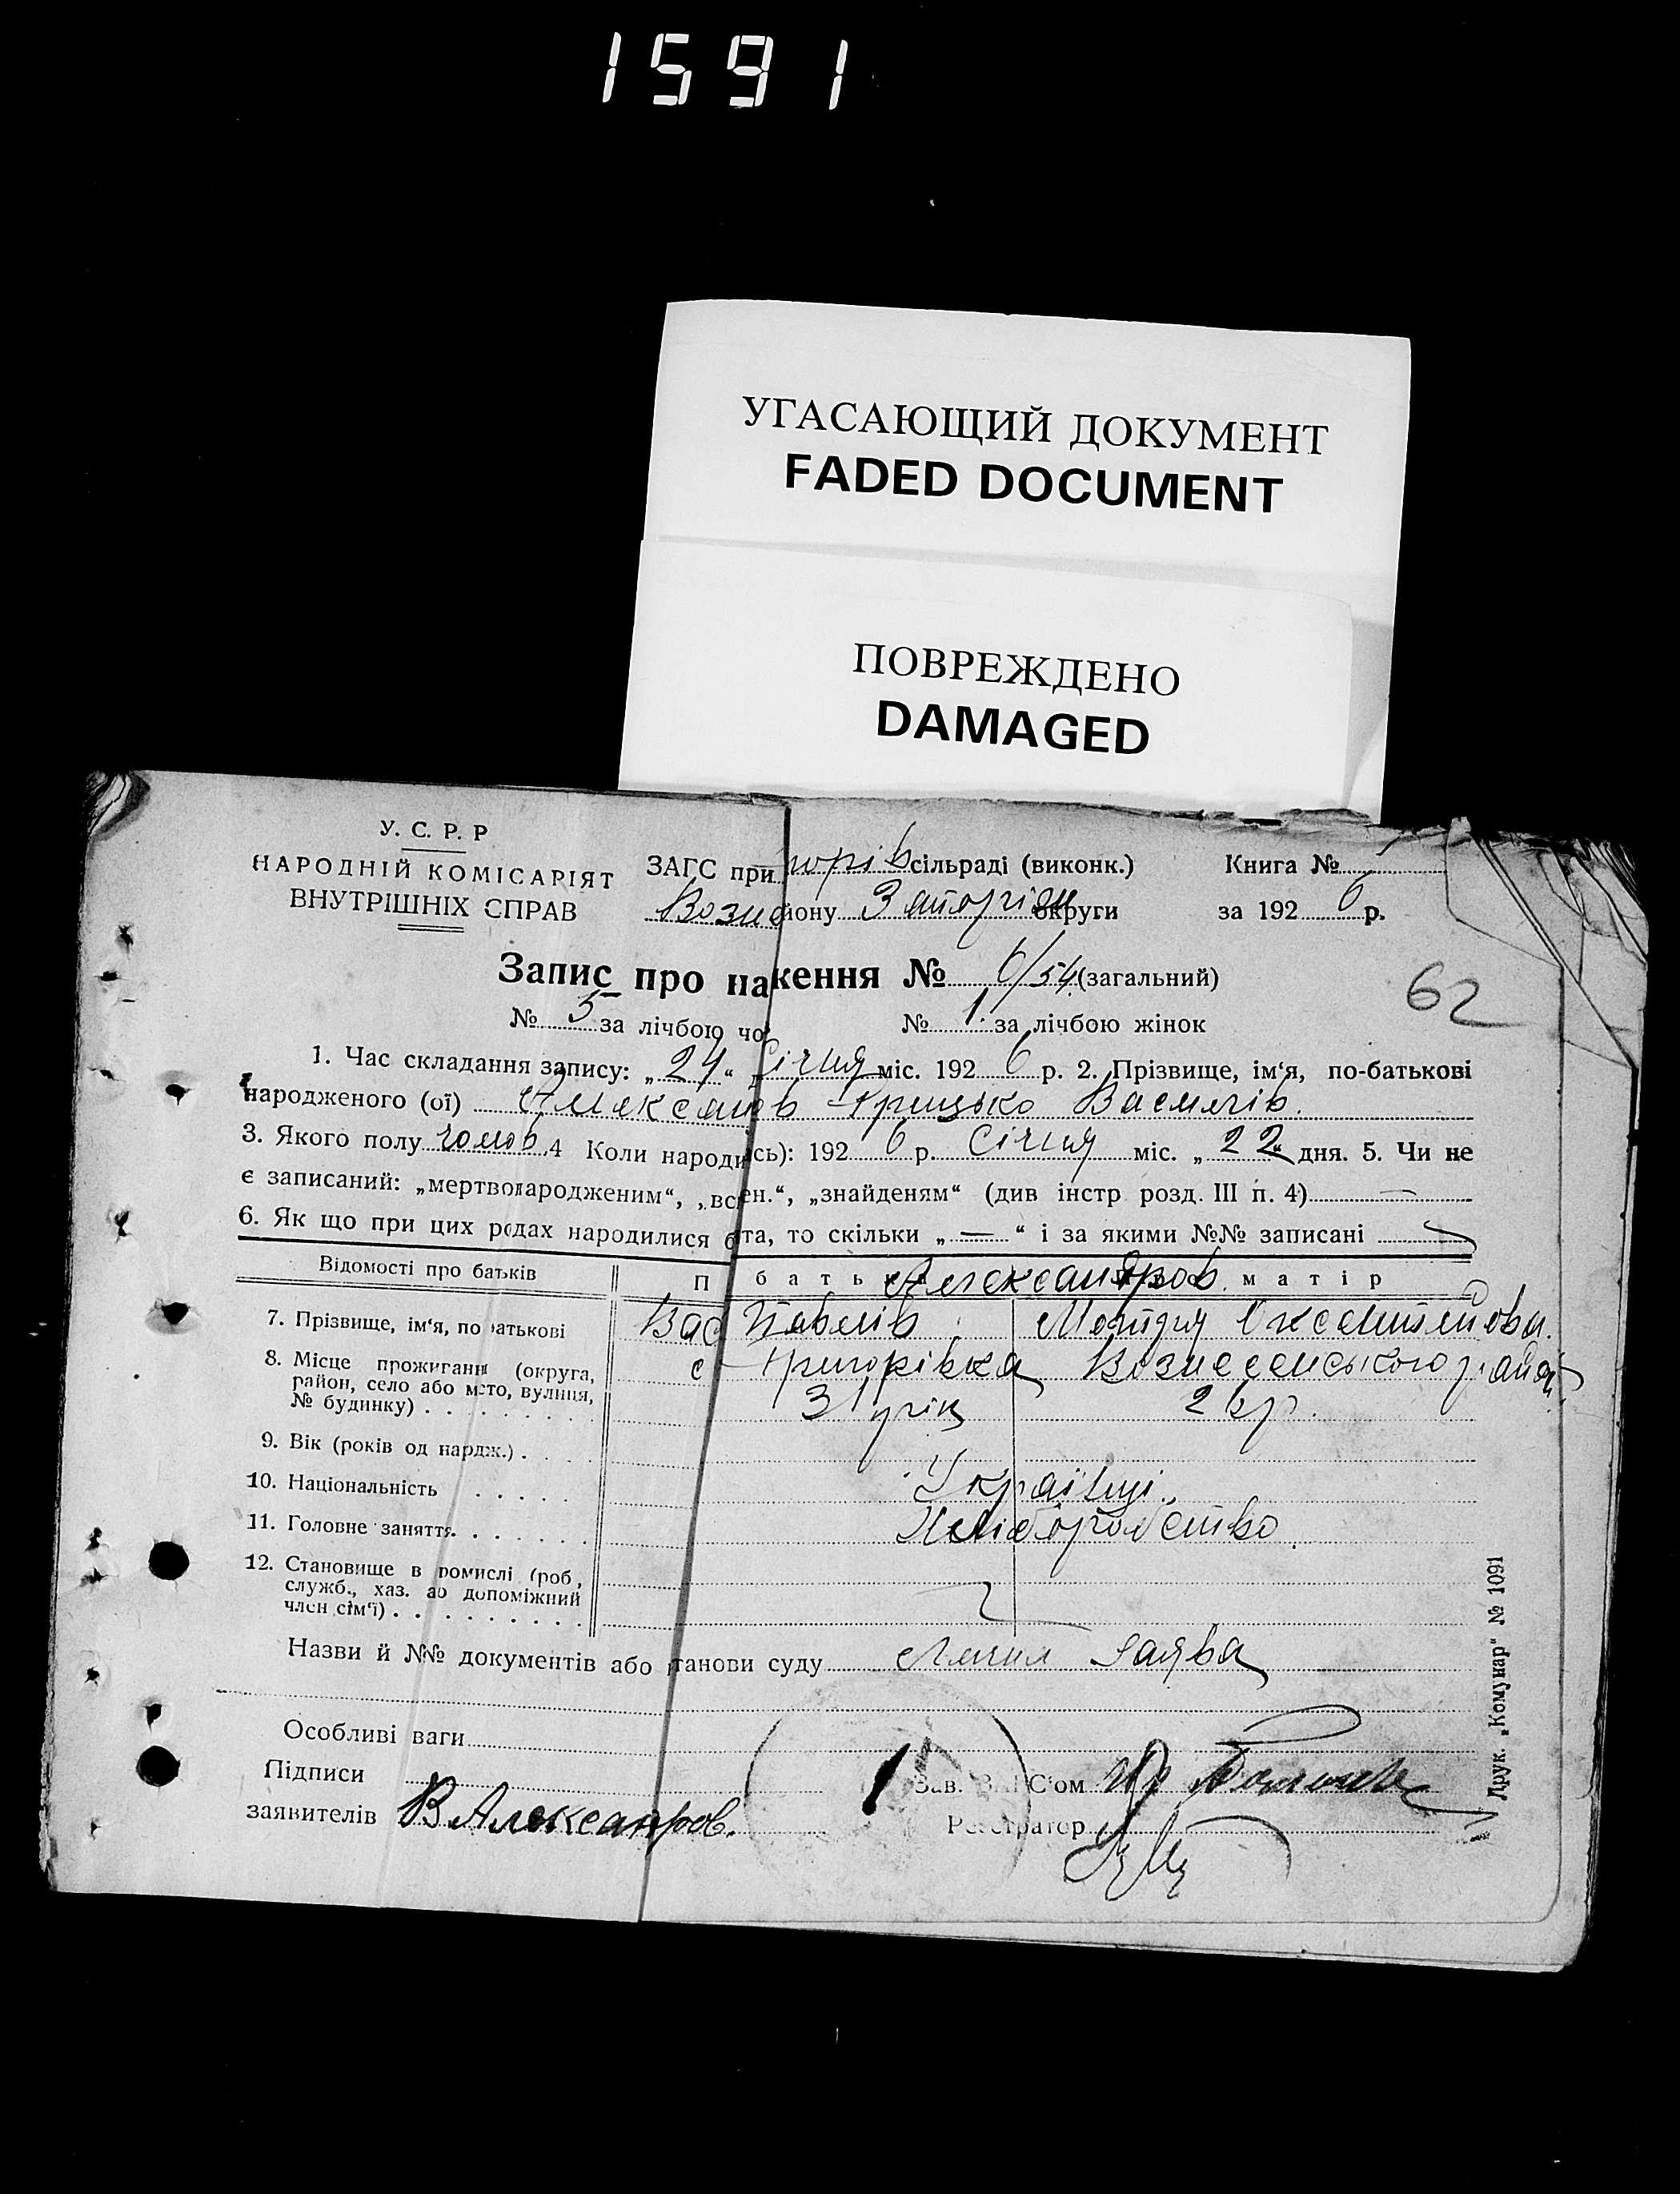 1591
УГАСАЮЩИЙ ДОКУМЕНТ
FADED DOCUMENT
ПОВРЕЖДЕНО
DAMAGED
У. С. Р. Р
НАРОДНІЙ КОМІСАРІЯТ
ВНУТРІШНІХ СПРАВ
ЗАГС при горів сільраді (виконк.)
Возне йону Запоріж округи
Книга №
за 192 6 р.
Запис про на кення № 6/54 (загальний)
62
№ 5 за лічбою чо № 1. за лічбою жінок
1. Час складання запису: „ 24 “ Січня міс. 192 6 р. 2. Прізвище, ім‘я, по-батькові
народженого (ої) Грицько Василів.
3. Якого полу чолов. 4 Коли народи сь): 192 6 р. Січня міс. „ 22 “ дня. 5. Чи не
є записаний: „мертвонародженим“, „вс ен.“, „знайденям“ (див інстр розд. III п. 4) —
6. Як що при цих родах народилися б та, то скільки „ — “ і за якими №№ записані
Відомості про батьків П батька Александров матір
7. Прізвище, ім‘я, по батькові Вас Павлів Мотря
8. Місце прожигання (округа, район, село або місто, вулиця, № будинку) с Григорівка Вознесенського району
31 рік 26 р.
9. Вік (років од нардж.)
10. Національність Українці.
11. Головне заняття Хліборобство
12. Становище в ромислі (роб, служб., хаз. або допоміжний член сім‘ї)
Назви й №№ документів або танови суду заява
Особливі ваги
Підписи
заявителів В Александров.
Зав. ЗАГС‘ом
Регістратор
Друк. „Комунар“ № 1091